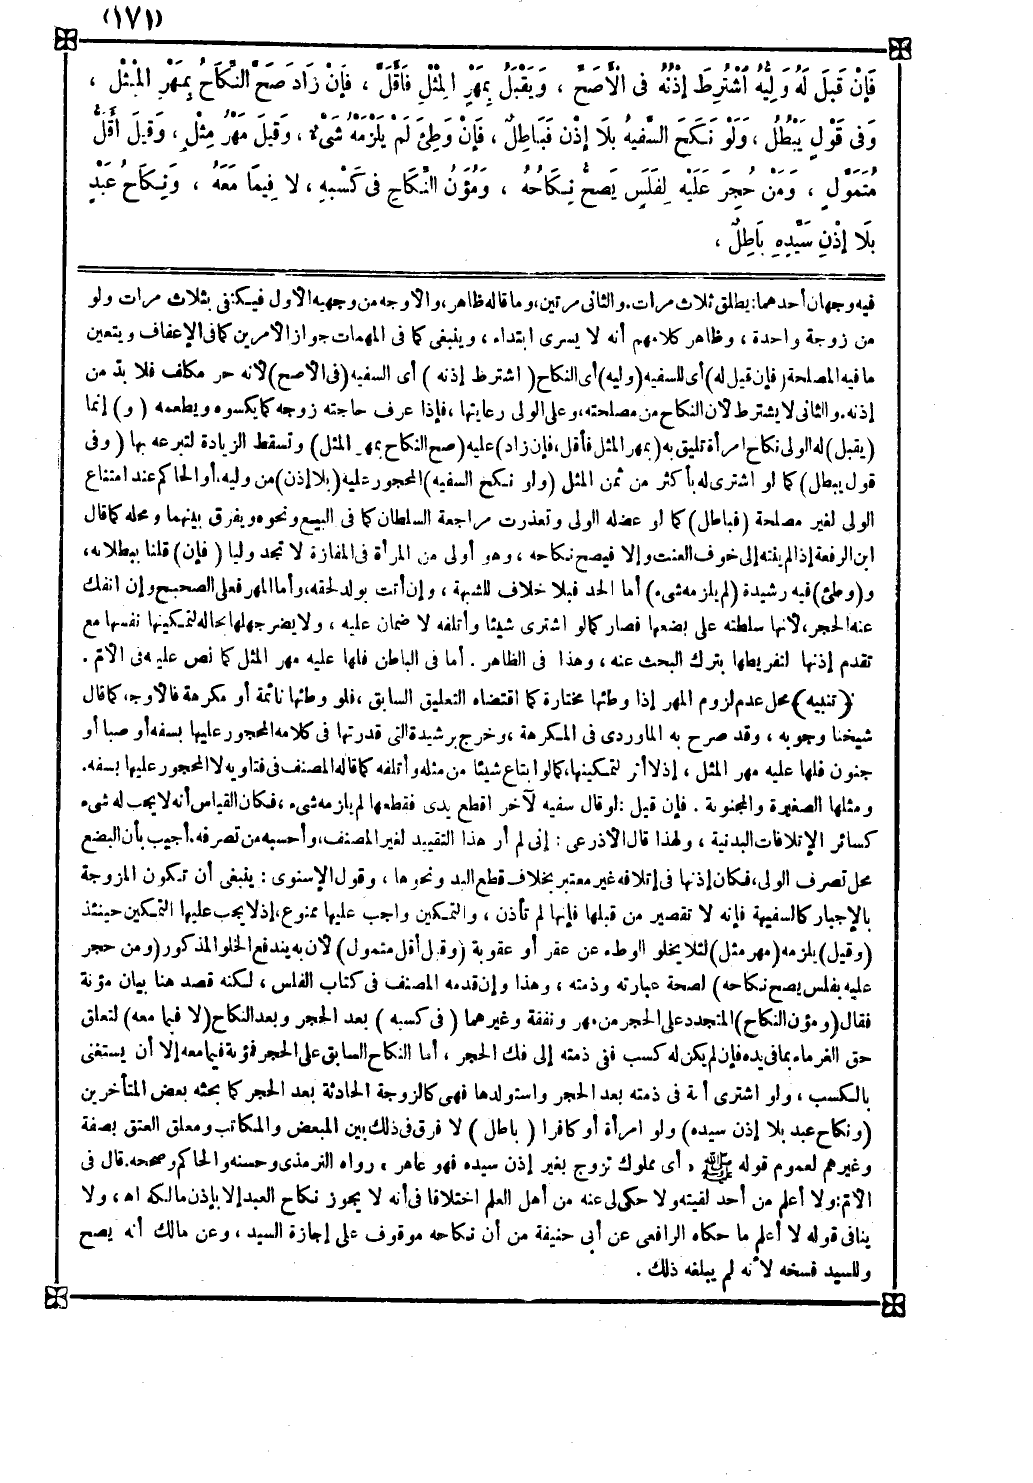 (١٧١)
فَإِنْ قَبِلَ لَهُ وَلِيُّهُ اشْتُرِطَ إِذْنُهُ فِى الْأَصَحِّ ، وَيَقْبَلُ بِمَهْرِ الْمِثْلِ فَأَقَلَّ ، فَإِنْ زَادَ صَحَّ النِّكَاحُ بِمَهْرِ الْمِثْلِ ،
وَفِى قَوْلٍ يَبْطُلُ ، وَلَوْ نَكَحَ السَّفِيهُ بِلَا إِذْنٍ فَبَاطِلٌ ، فَإِنْ وَطِئَ لَمْ يَلْزَمْهُ شَىْءٌ ، وَقِيلَ مَهْرُ مِثْلٍ ، وَقِيلَ أَقَلُّ
مُتَمَوَّلٍ ، وَمَنْ حُجِرَ عَلَيْهِ لِفَلَسٍ يَصِحُّ نِكَاحُهُ ، وَمُؤَنُ النِّكَاحِ فِى كَسْبِهِ ، لَا فِيمَا مَعَهُ ، وَنِكَاحُ عَبْدٍ
بِلَا إِذْنِ سَيِّدِهِ بَاطِلٌ ،
فيه وجهان أحدهما: يطلق ثلاث مرات. والثانى مرتين، وما قاله ظاهر، والأوجه من وجهيه الأول فيكفى بثلاث مرات ولو
من زوجة واحدة ، وظاهر كلامهم أنه لا يسرى ابتداء ، وينبغى كما فى المهمات جواز الأمرين كما فى الإعفاف ويتعين
ما فيه المصلحة (فإن قبل له) أى للسفيه (وليه) أى النكاح (اشترط إذنه) أى السفيه (فى الأصح) لأنه حر مكلف فلا بد من
إذنه. والثانى لا يشترط لأن النكاح من مصلحته، وعلى الولى رعايتها ، فإذا عرف حاجته زوجه كما يكسوه ويطعمه (و) إنما
(يقبل) له الولى نكاح امرأة تليق به (بمهر المثل فأقل، فإن زاد) عليه (صح النكاح بمهر المثل) وتسقط الزيادة لتبرعه بها (وفى
قول يبطل) كما لو اشترى له بأكثر من ثمن المثل (ولو نكح السفيه) المحجور عليه (بلا إذن) من وليه، أو الحاكم عند امتناع
الولى لغير مصلحة (فباطل) كما لو عضله الولى وتعذرت مراجعة السلطان كما فى البيع ونحوه ويفرق بينهما ومحله كما قال
ابن الرفعة إذا لم ينته إلى خوف العنت وإلا فيصح نكاحه ، وهو أولى من المرأة فى المفازة لا تجد وليا (فإن) قلنا ببطلانه،
و (وطئ) فيه رشيدة (لم يلزمه شىء) أما الحد فبلا خلاف للشبهة ، وإن أتت بولد لحقه، وأما المهر فعلى الصحيح وإن انفك
عنه الحجر، لأنها سلطته على بضعها فصار كما لو اشترى شيئا وأتلفه لا ضمان عليه ، ولا يضر جهلها بحاله لتمكينها نفسها مع
تقدم إذنها لتفريطها بترك البحث عنه ، وهذا فى الظاهر . أما فى الباطن فلها عليه مهر المثل كما نص عليه فى الأم .
﴿تنبيه﴾ محل عدم لزوم المهر إذا وطئها مختارة كما اقتضاه التعليق السابق ، فلو وطئها نائمة أو مكرهة فالأوجه كما قال
شيخنا وجوبه ، وقد صرح به الماوردى فى المكرهة ، وخرج برشيدة التى قدرتها فى كلامه المحجور عليها بسفه أو صبا أو
جنون فلها عليه مهر المثل ، إذ لا أثر لتمكينها، كما لو ابتاع شيئا من مثله وأتلفه كما قاله المصنف فى فتاويه لا المحجور عليها بسفه.
ومثلها الصغيرة والمجنونة . فإن قيل : لو قال سفيه لآخر اقطع يدى فقطعها لم يلزمه شىء ، فكان القياس أنه لا يجب له شىء
كسائر الإتلافات البدنية ، ولهذا قال الأذرعى : إنى لم أر هذا التقييد لغير المصنف، وأحسبه من تصرفه. أجيب بأن البضع
محل تصرف الولى، فكان إذنها فى إتلافه غير معتبر بخلاف قطع اليد ونحوها ، وقول الإسنوى : ينبغى أن تكون المزوجة
بالإجبار كالسفيهة فإنه لا تقصير من قبلها فإنها لم تأذن ، والتمكين واجب عليها ممنوع، إذ لا يجب عليها التمكين حينئذ
(وقيل) يلزمه (مهر مثل) لئلا يخلو الوطء عن عقر أو عقوبة (وقيل أقل متمول) لأن به يندفع الخلو المذكور (ومن حجر
عليه بفلس يصح نكاحه) لصحة عبارته وذمته ، وهذا وإن قدمه المصنف فى كتاب الفلس ، لكنه قصد هنا بيان مؤنة
فقال (ومؤن النكاح) المتجدد على الحجر من مهر ونفقة وغيرهما (فى كسبه) بعد الحجر وبعد النكاح (لا فيما معه) لتعلق
حق الغرماء بما فى يده فإن لم يكن له كسب ففى ذمته إلى فك الحجر ، أما النكاح السابق على الحجر فمؤنه فيما معه إلا أن يستغنى
بالكسب ، ولو اشترى أمة فى ذمته بعد الحجر واستولدها فهى كالزوجة الحادثة بعد الحجر كما بحثه بعض المتأخرين
(ونكاح عبد بلا إذن سيده) ولو امرأة أو كافرا (باطل) لا فرق فى ذلك بين المبعض والمكاتب ومعلق العتق بصفة
وغيرهم لعموم قوله ﷺ « أى مملوك تزوج بغير إذن سيده فهو عاهر » رواه الترمذى وحسنه والحاكم وصححه. قال فى
الأم: ولا أعلم من أحد لقيته ولا حكى لى عنه من أهل العلم اختلافا فى أنه لا يجوز نكاح العبد إلا بإذن مالكه اه ، ولا
ينافى قوله لا أعلم ما حكاه الرافعى عن أبى حنيفة من أن نكاحه موقوف على إجازة السيد ، وعن مالك أنه يصح
وللسيد فسخه لأنه لم يبلغه ذلك .